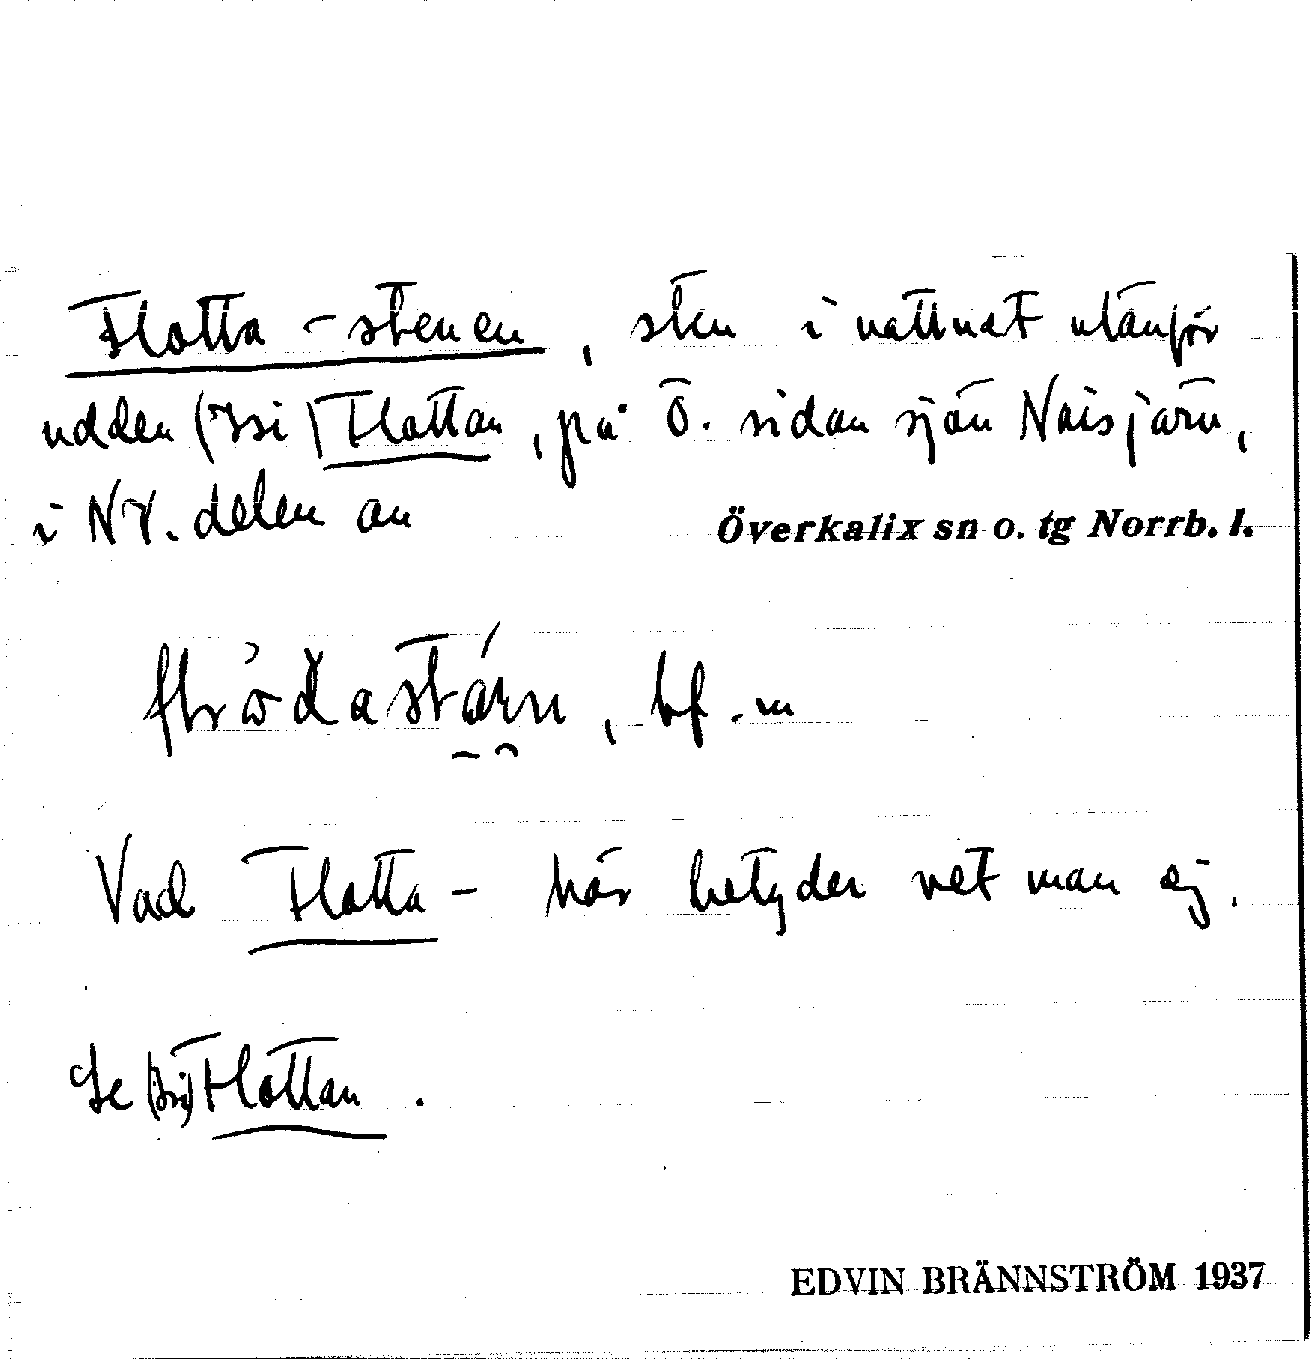 Flotta-stenen, sten i vattnet utanför
udden (Isi) Flottan, på Ö. sidan sjön Naisjärv,
i NV. delen av Överkalix sn o. tg Norrb. l.
bf. m
Vad Flotta- här betyder vet man ej.
Se (Isi) Flottan.
EDVIN BRÄNNSTRÖM 1937